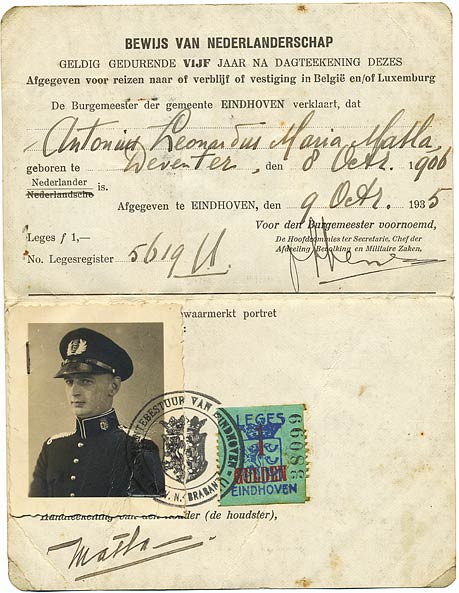 BEWIJS VAN NEDERLANDERSCHAP
GELDIG GEDURENDE VIJF JAAR NA DAGTEEKENING DEZES
Afgegeven voor reizen naar of verblijf of vestiging in België en/of Luxemburg
De Burgemeester der gemeente EINDHOVEN verklaart, dat
Antonius Leonardus Maria Matla
geboren te Deventer, den 8 Octr. 1906
Nederlander
Nederlandsche is.
Afgegeven te EINDHOVEN, den 9 Octr. 1935
Voor den Burgemeester voornoemd,
Leges f 1,—
De Hoofdcommies ter Secretarie, Chef der
Afdeeling Bevolking en Militaire Zaken,
No. Legesregister 5619
waarmerkt portret
GEMEENTEBESTUUR VAN EINDHOVEN
N. BRABANT
LEGES
1
GULDEN
EINDHOVEN
38099
Handteekening van den houder (de houdster),
Matla